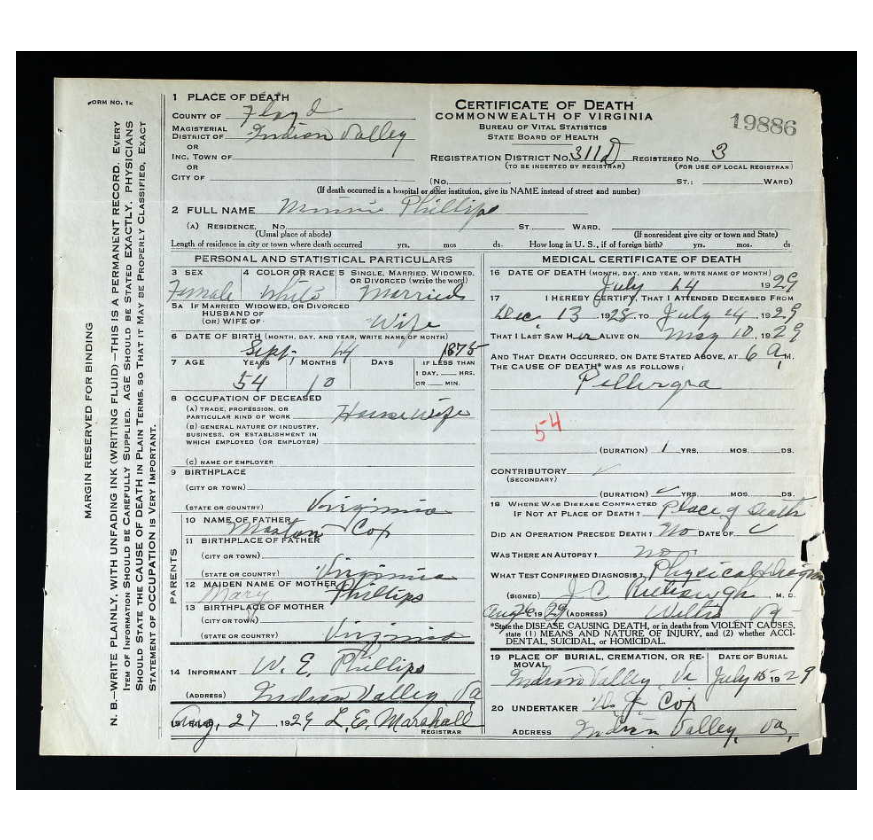 FORM NO. 1K
MARGIN RESERVED FOR BINDING
N. B.—WRITE PLAINLY, WITH UNFADING INK (WRITING FLUID)—THIS IS A PERMANENT RECORD. EVERY
ITEM OF INFORMATION SHOULD BE CAREFULLY SUPPLIED. AGE SHOULD BE STATED EXACTLY. PHYSICIANS
SHOULD STATE THE CAUSE OF DEATH IN PLAIN TERMS, SO THAT IT MAY BE PROPERLY CLASSIFIED. EXACT
STATEMENT OF OCCUPATION IS VERY IMPORTANT.
1 PLACE OF DEATH
COUNTY OF Floyd
MAGISTERIAL
DISTRICT OF Indian Valley
OR
INC. TOWN OF
OR
CITY OF
CERTIFICATE OF DEATH
COMMONWEALTH OF VIRGINIA
BUREAU OF VITAL STATISTICS
STATE BOARD OF HEALTH
19886
REGISTRATION DISTRICT NO. 311D REGISTERED NO. 3
(TO BE INSERTED BY REGISTRAR) (FOR USE OF LOCAL REGISTRAR)
(NO. ST.; WARD)
(If death occurred in a hospital or other institution, give its NAME instead of street and number)
2 FULL NAME Minnie Phillips
(A) RESIDENCE, NO. ST. WARD.
(Usual place of abode) (If nonresident give city or town and State)
Length of residence in city or town where death occurred yrs. mos. ds. How long in U. S., if of foreign birth? yrs. mos. ds
PERSONAL AND STATISTICAL PARTICULARS
3 SEX 4 COLOR OR RACE 5 SINGLE, MARRIED, WIDOWED,
OR DIVORCED (write the word)
Female White Married
5A IF MARRIED WIDOWED, OR DIVORCED
HUSBAND OF
(OR) WIFE OF Wife
6 DATE OF BIRTH (MONTH, DAY, AND YEAR, WRITE NAME OF MONTH)
Sept, 14 1875
7 AGE YEARS MONTHS DAYS IF LESS THAN
1 DAY, HRS.
OR MIN.
54 10
8 OCCUPATION OF DECEASED
(A) TRADE, PROFESSION, OR
PARTICULAR KIND OF WORK Housewife
(B) GENERAL NATURE OF INDUSTRY,
BUSINESS, OR ESTABLISHMENT IN
WHICH EMPLOYED (OR EMPLOYER)
(C) NAME OF EMPLOYER
9 BIRTHPLACE
(CITY OR TOWN)
(STATE OR COUNTRY) Virginia
PARENTS
10 NAME OF FATHER
Maston Cox
11 BIRTHPLACE OF FATHER
(CITY OR TOWN)
(STATE OR COUNTRY) Virginia
12 MAIDEN NAME OF MOTHER
Mary Phillips
13 BIRTHPLACE OF MOTHER
(CITY OR TOWN)
(STATE OR COUNTRY) Virginia
14 INFORMANT W. E. Phillips
(ADDRESS) Indian Valley Va
15 FILED Aug, 27 1929 L. E. Marshall
REGISTRAR
MEDICAL CERTIFICATE OF DEATH
16 DATE OF DEATH (MONTH, DAY, AND YEAR, WRITE NAME OF MONTH)
July 14 1929
17 I HEREBY CERTIFY, THAT I ATTENDED DECEASED FROM
Dec. 13 1928, TO July 14, 1929
THAT I LAST SAW H er ALIVE ON May 10, 1929
AND THAT DEATH OCCURRED, ON DATE STATED ABOVE, AT 6 A, M.
THE CAUSE OF DEATH* WAS AS FOLLOWS:
Pellergra
54
(DURATION) 1 YRS. MOS. DS.
CONTRIBUTORY
(SECONDARY)
(DURATION) YRS. MOS. DS.
18 WHERE WAS DISEASE CONTRACTED
IF NOT AT PLACE OF DEATH? Place of Death
DID AN OPERATION PRECEDE DEATH? No DATE OF
WAS THERE AN AUTOPSY? No
WHAT TEST CONFIRMED DIAGNOSIS? Physical
(SIGNED) J. C. M. D.
Aug 1929 (ADDRESS) Va
*State the DISEASE CAUSING DEATH, or in deaths from VIOLENT CAUSES,
state (1) MEANS AND NATURE OF INJURY, and (2) whether ACCI-
DENTAL, SUICIDAL, or HOMICIDAL.
19 PLACE OF BURIAL, CREMATION, OR RE- DATE OF BURIAL
MOVAL
Indian Valley, Va July 15 1929
20 UNDERTAKER W. J. Cox
ADDRESS Indian Valley, Va,